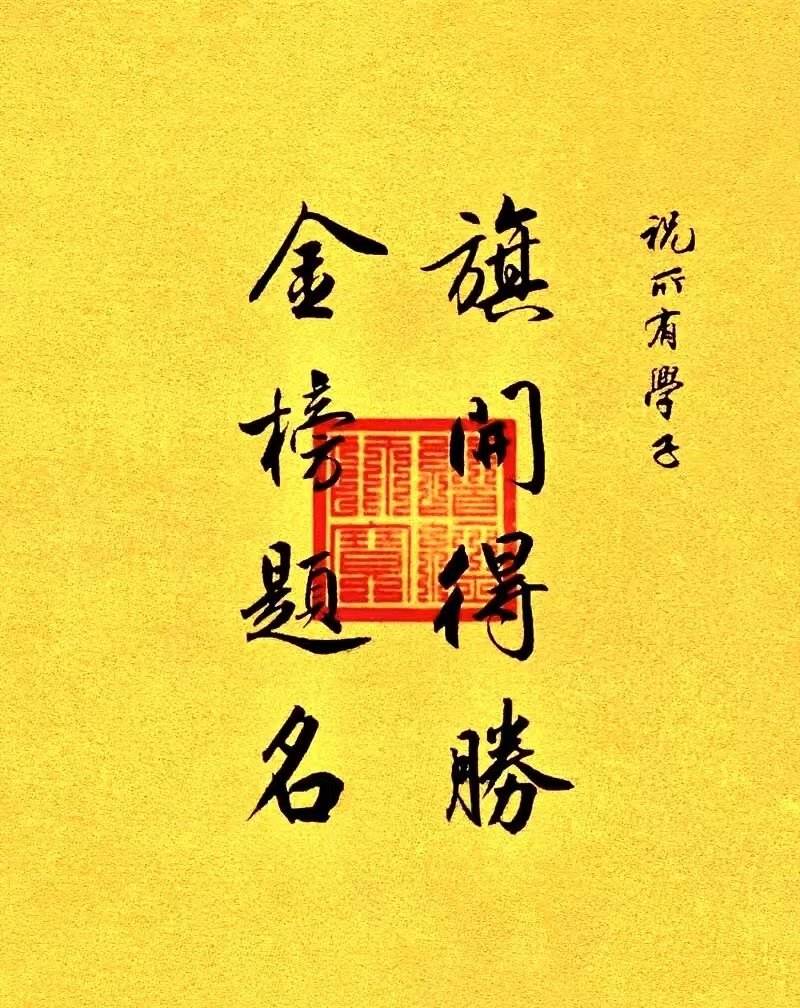 祝所有學子
旗開得勝
金榜題名